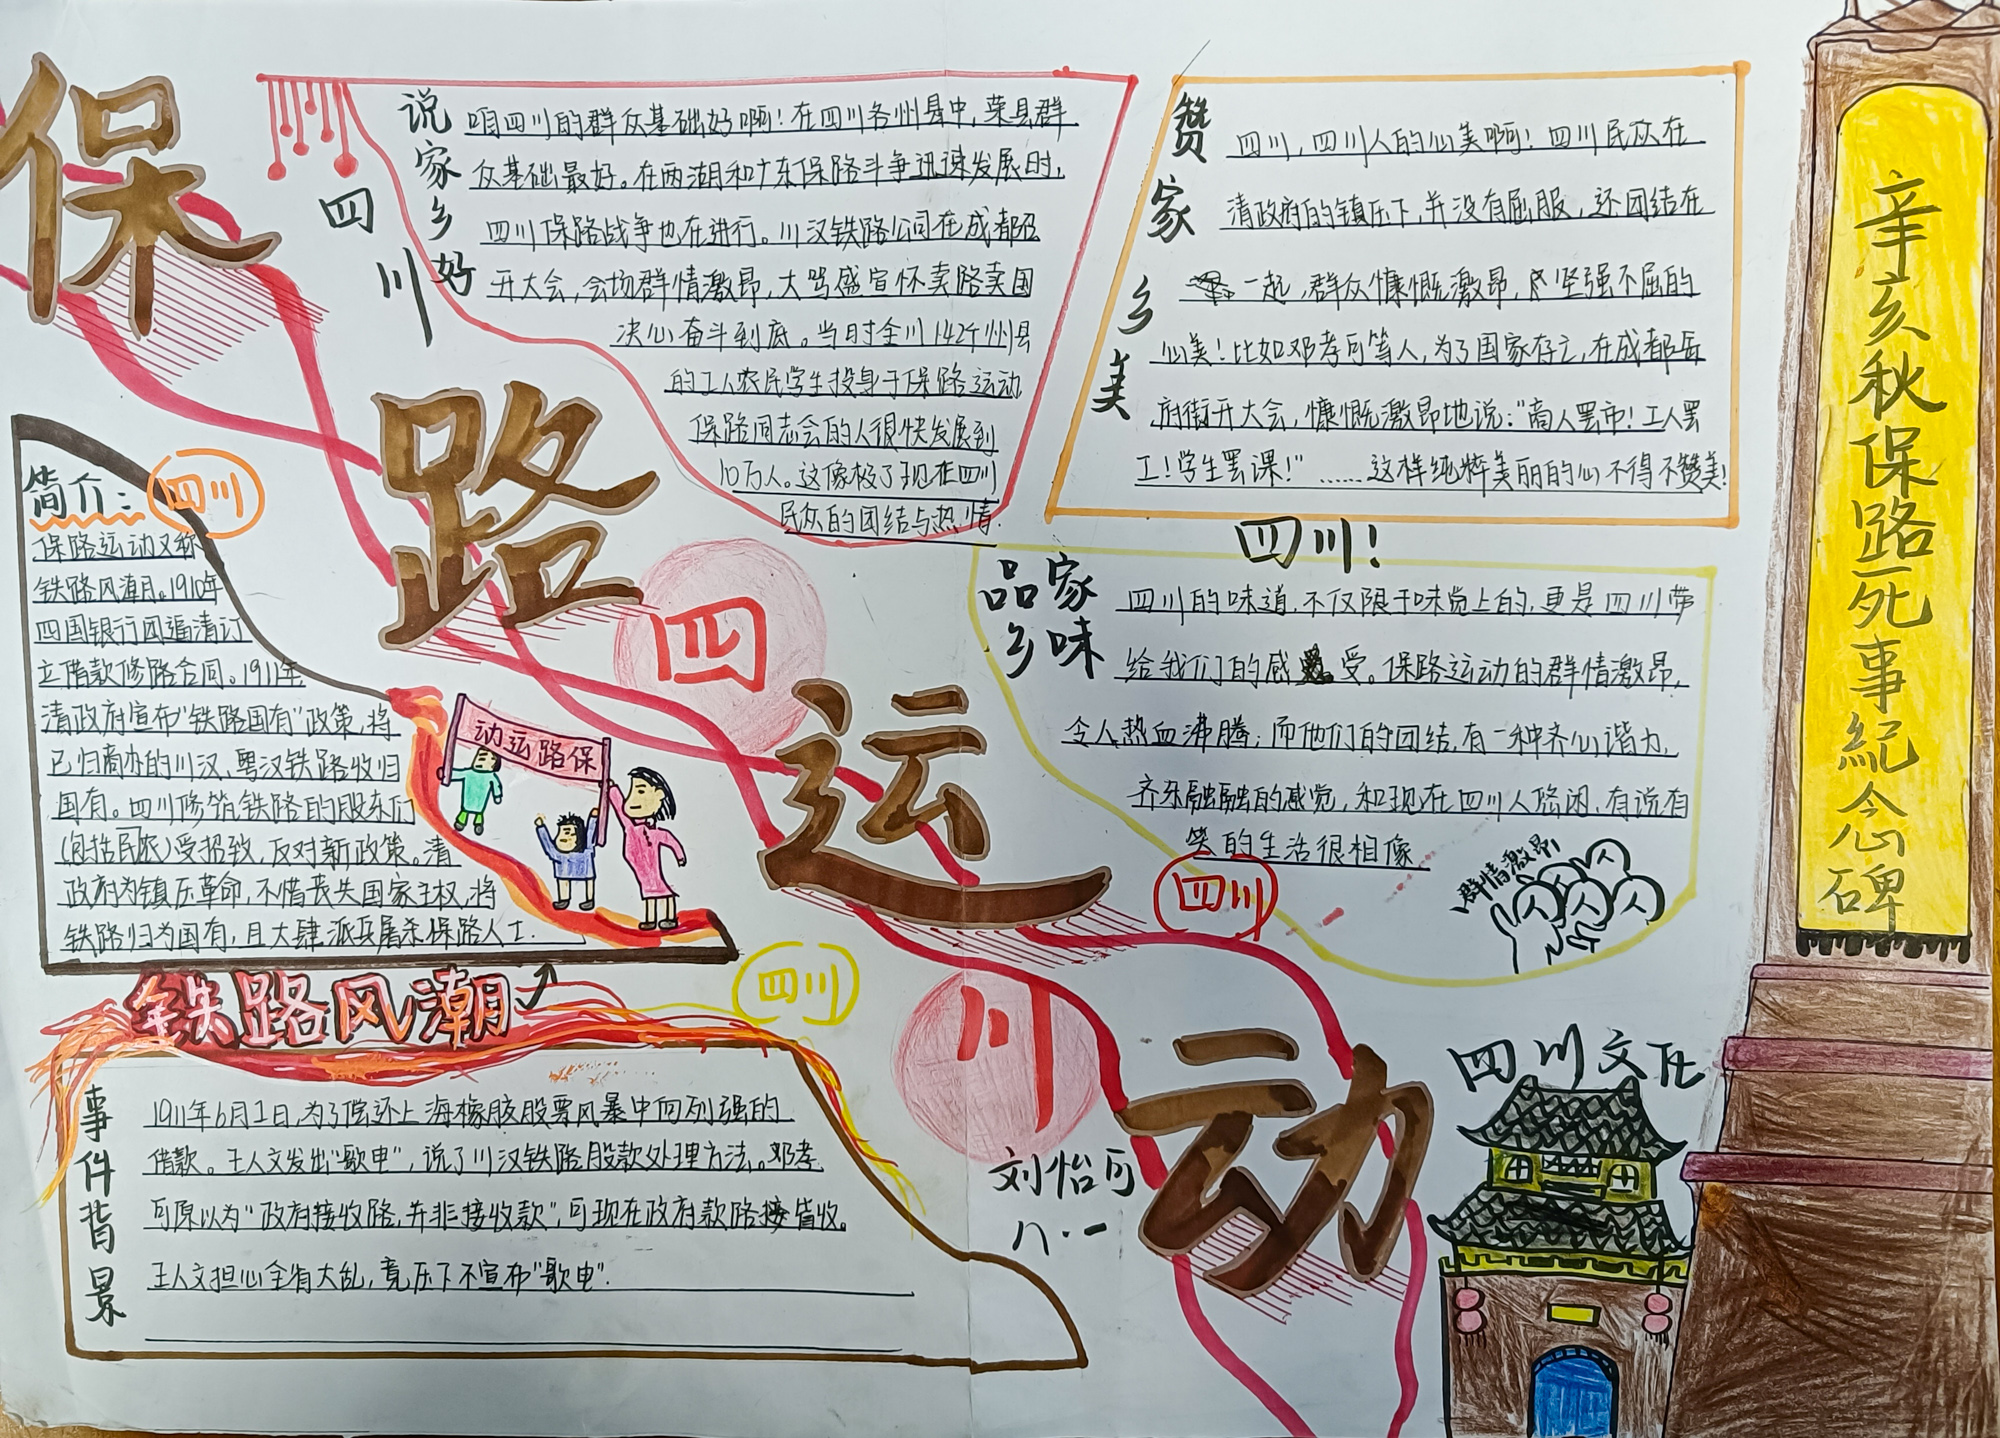 保
路
运
动
四
川
说家乡好
四川
咱四川的群众基础好啊！在四川各州县中，荣县群
众基础最好。在两湖和广东保路斗争迅速发展时，
四川保路战争也在进行。川汉铁路公司在成都召
开大会，会场群情激昂，大骂盛宣怀卖路卖国
决心奋斗到底。当时全川142个州县
的工人农民学生投身于保路运动
保路同志会的人很快发展到
10万人。这像极了现在四川
民众的团结与热情.
赞家乡美
四川，四川人的心美啊！四川民众在
清政府的镇压下，并没有屈服，还团结在
一起，群众慷慨激昂，坚强不屈的
心美！比如邓孝可等人，为了国家存亡，在成都岳
府街开大会，慷慨激昂地说："商人罢市！工人罢
工！学生罢课！"……这样纯粹美丽的心不得不赞美！
四川！
品家
乡味
四川的味道，不仅限于味觉上的，更是四川带
给我们的感受。保路运动的群情激昂，
令人热血沸腾；而他们的团结，有一种齐心谐力，
齐乐融融的感觉，和现在四川人悠闲，有说有
笑的生活很相像
四川
群情激昂
人
人
人
人
简介：
四川
保路运动又称
铁路风潮。1910年
四国银行团逼清订
立借款修路合同。1911年
清政府宣布"铁路国有"政策，将
已归商办的川汉、粤汉铁路收归
国有。四川修筑铁路的股东们
(包括民众)受招致，反对新政策。清
政府为镇压革命，不惜丧失国家主权，将
铁路归为国有，且大肆派兵屠杀保路人士.
动运路保
铁路风潮
四川
事件背景
1911年6月1日，为了偿还上海橡胶股票风暴中向列强的
借款。王人文发出"歌电"，说了川汉铁路股款处理方法。邓孝
可原以为"政府接收路，并非接收款"，可现在政府款路皆收。
王人文担心全省大乱，竟压下不宣布"歌电".
刘怡可
八·一
四川文化
辛亥秋保路死事紀念碑